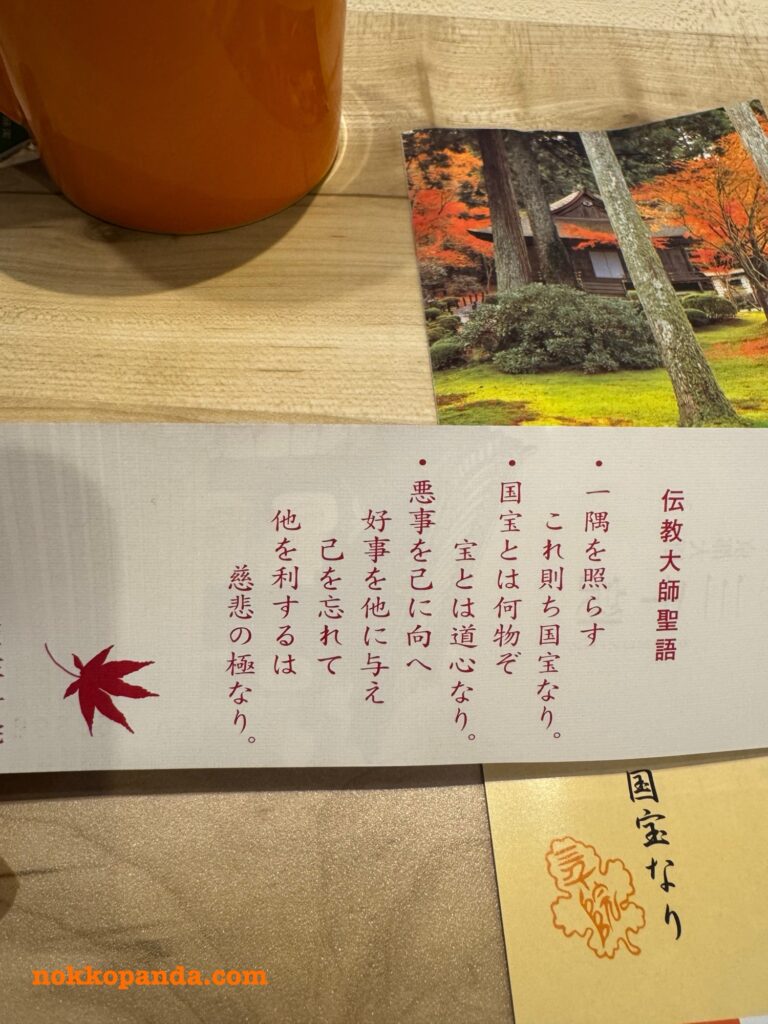 伝教大師聖語
・一隅を照らす
これ則ち国宝なり。
・国宝とは何物ぞ
宝とは道心なり。
・悪事を己に向へ
好事を他に与え
己を忘れて
他を利するは
慈悲の極なり。
国宝なり
nokkopanda.com